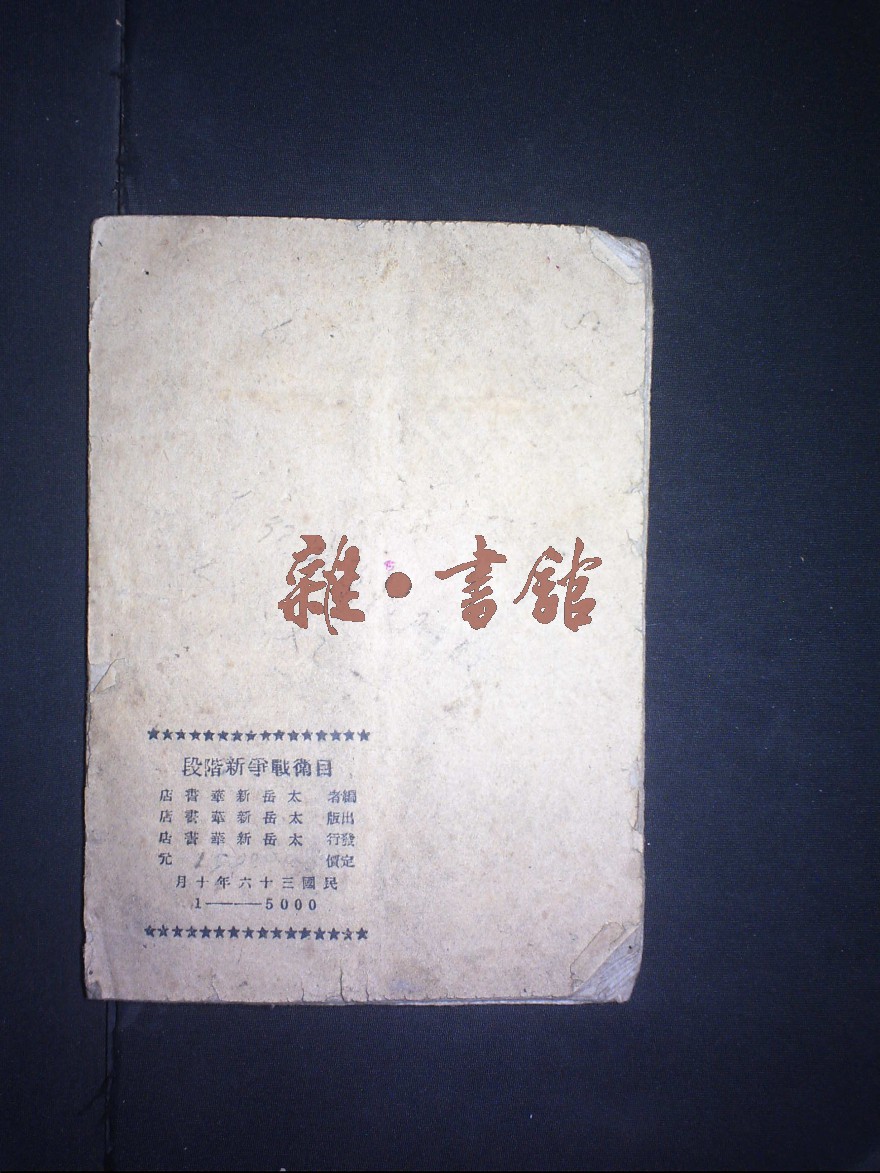 雜·書館
自衛戰爭新階段
編者 太岳新華書店
出版 太岳新華書店
發行 太岳新華書店
定價 元
民國三十六年十月
1——5000